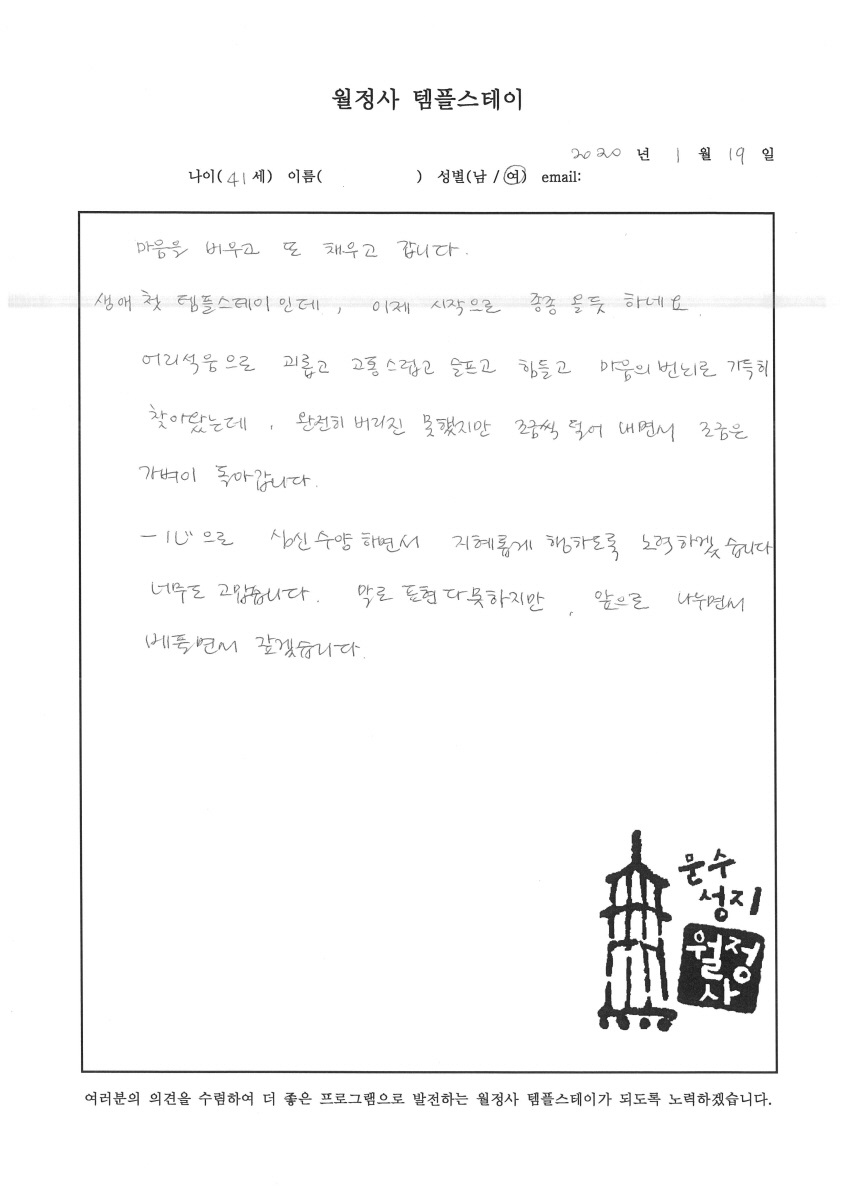 월정사 템플스테이
2020 년 1 월 19 일
나이( 41 세) 이름( ) 성별(남 / 여) email:
마음을 비우고 또 채우고 갑니다.
생애 첫 템플스테이인데, 이제 시작으로 종종 올듯 하네요.
어리석음으로 괴롭고 고통스럽고 슬프고 힘들고 마음의 번뇌로 가득히
찾아왔는데, 완전히 버리진 못했지만 조금씩 덜어 내면서 조금은
가벼이 돌아갑니다.
一心으로 심신수양하면서 지혜롭게 행하도록 노력하겠습니다
너무도 고맙습니다. 말로 표현 다 못하지만, 앞으로 나누면서
베풀면서 갚겠습니다.
문수
성지
월정
사
여러분의 의견을 수렴하여 더 좋은 프로그램으로 발전하는 월정사 템플스테이가 되도록 노력하겠습니다.